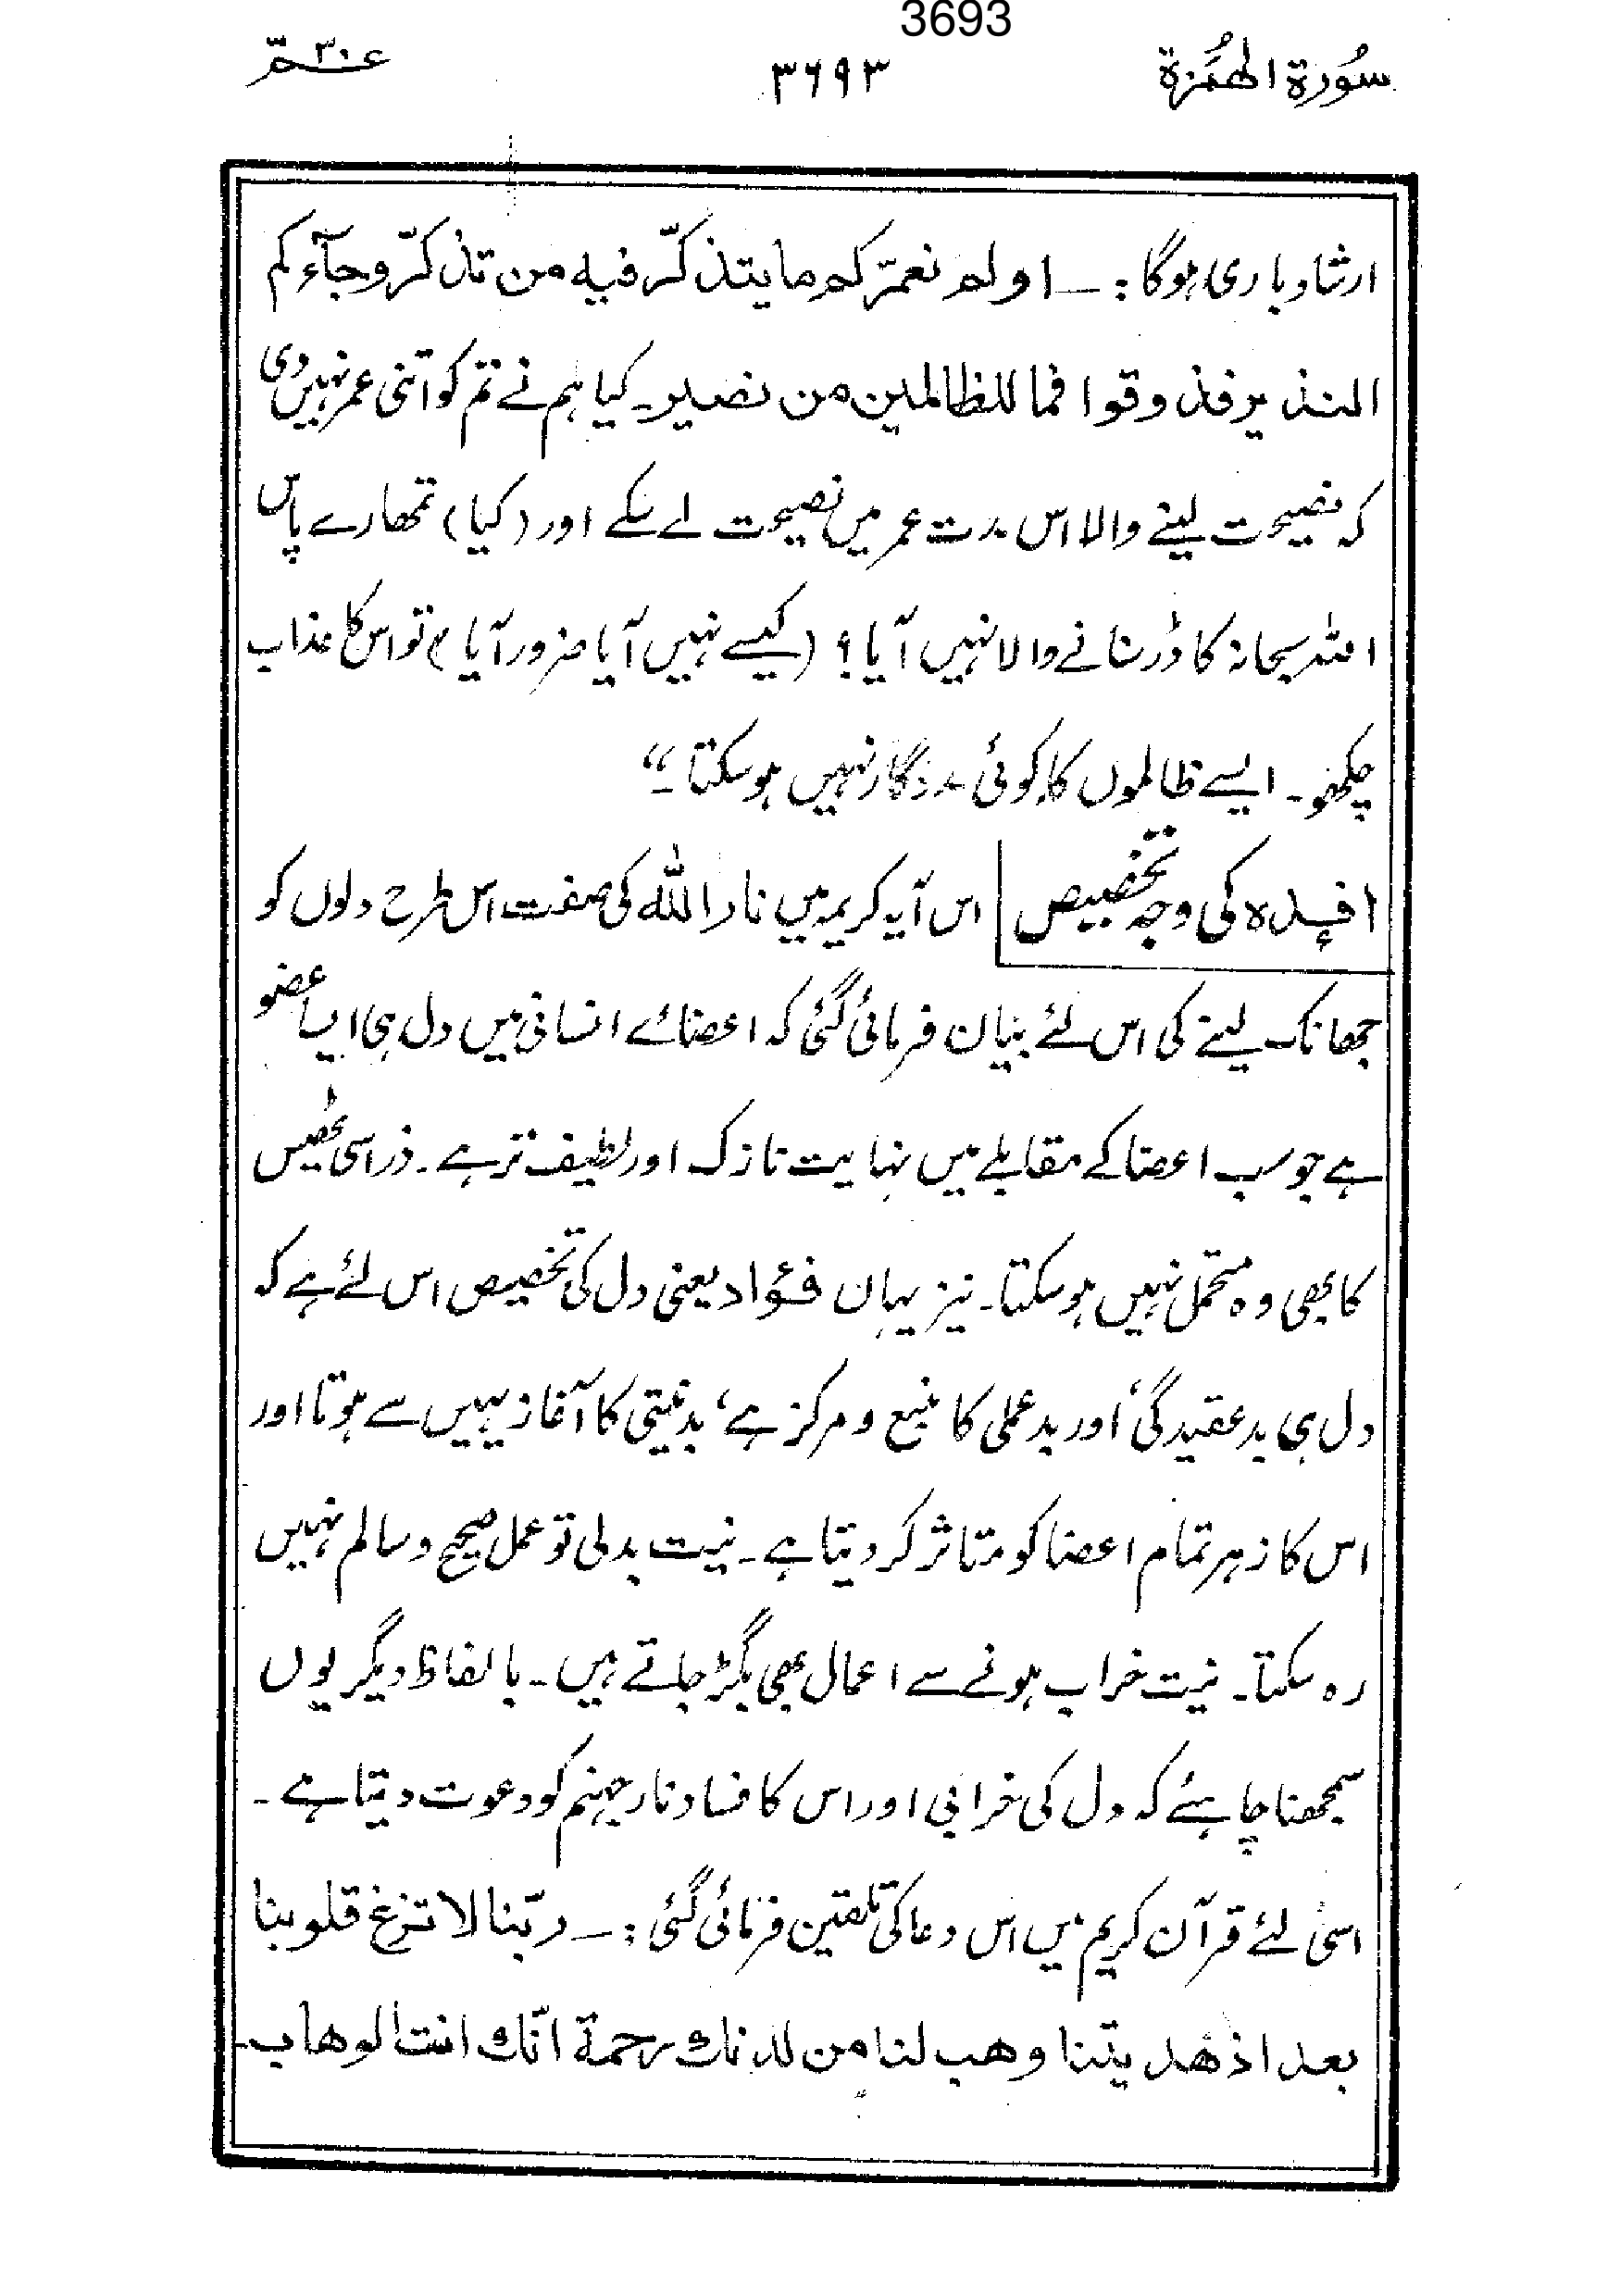 3693
سُورة الھُمَزة
۳۶۹۳
عمّ ۳۰
ارشاد باری ہوگا :۔ اولم نعمّرکم مایتذکّر فیہ من تذکّر وجآءکم
النذیر فذوقوا فما للظالمین من نصیر۔ کیا ہم نے تم کو اتنی عمر نہیں دی
کہ نصیحت لینے والا اس مدت عمر میں نصیحت لے سکے اور (کیا) تمھارے پاس
اللہ سبحانہ کا ڈر سنانے والا نہیں آیا؟ (کیسے نہیں آیا ضرور آیا) تو اس کا عذاب
چکھو۔ ایسے ظالموں کا کوئی مددگار نہیں ہو سکتا۔“
افئدہ کی وجہ تخصیص اس آیہ کریمہ میں نار اللہ کی صفت اس طرح دلوں کو
جھانک لینے کی اس لئے بیان فرمائی گئی کہ اعضائے انسانی میں دل ہی ایسا عضو
ہے جو سب اعضا کے مقابلے میں نہایت نازک اور لطیف تر ہے۔ ذرا سی ٹھیس
کا بھی وہ متحمل نہیں ہو سکتا۔ نیز یہاں فؤاد یعنی دل کی تخصیص اس لئے ہے کہ
دل ہی بد عقیدگی اور بد عملی کا منبع و مرکز ہے، بد نیتی کا آغاز یہیں سے ہوتا اور
اس کا زہر تمام اعضا کو متاثر کر دیتا ہے۔ نیت بدلی تو عمل صحیح و سالم نہیں
رہ سکتا۔ نیت خراب ہونے سے اعمال بھی بگڑ جاتے ہیں۔ بالفاظ دیگر یوں
سمجھنا چاہئے کہ دل کی خرابی اور اس کا فساد نار جہنم کو دعوت دیتا ہے۔
اسی لئے قرآن کریم میں اس دعا کی تلقین فرمائی گئی :۔ ربّنا لا تزغ قلوبنا
بعد اذ ھدیتنا وھب لنا من لدنک رحمة انّک انت الوھاب۔